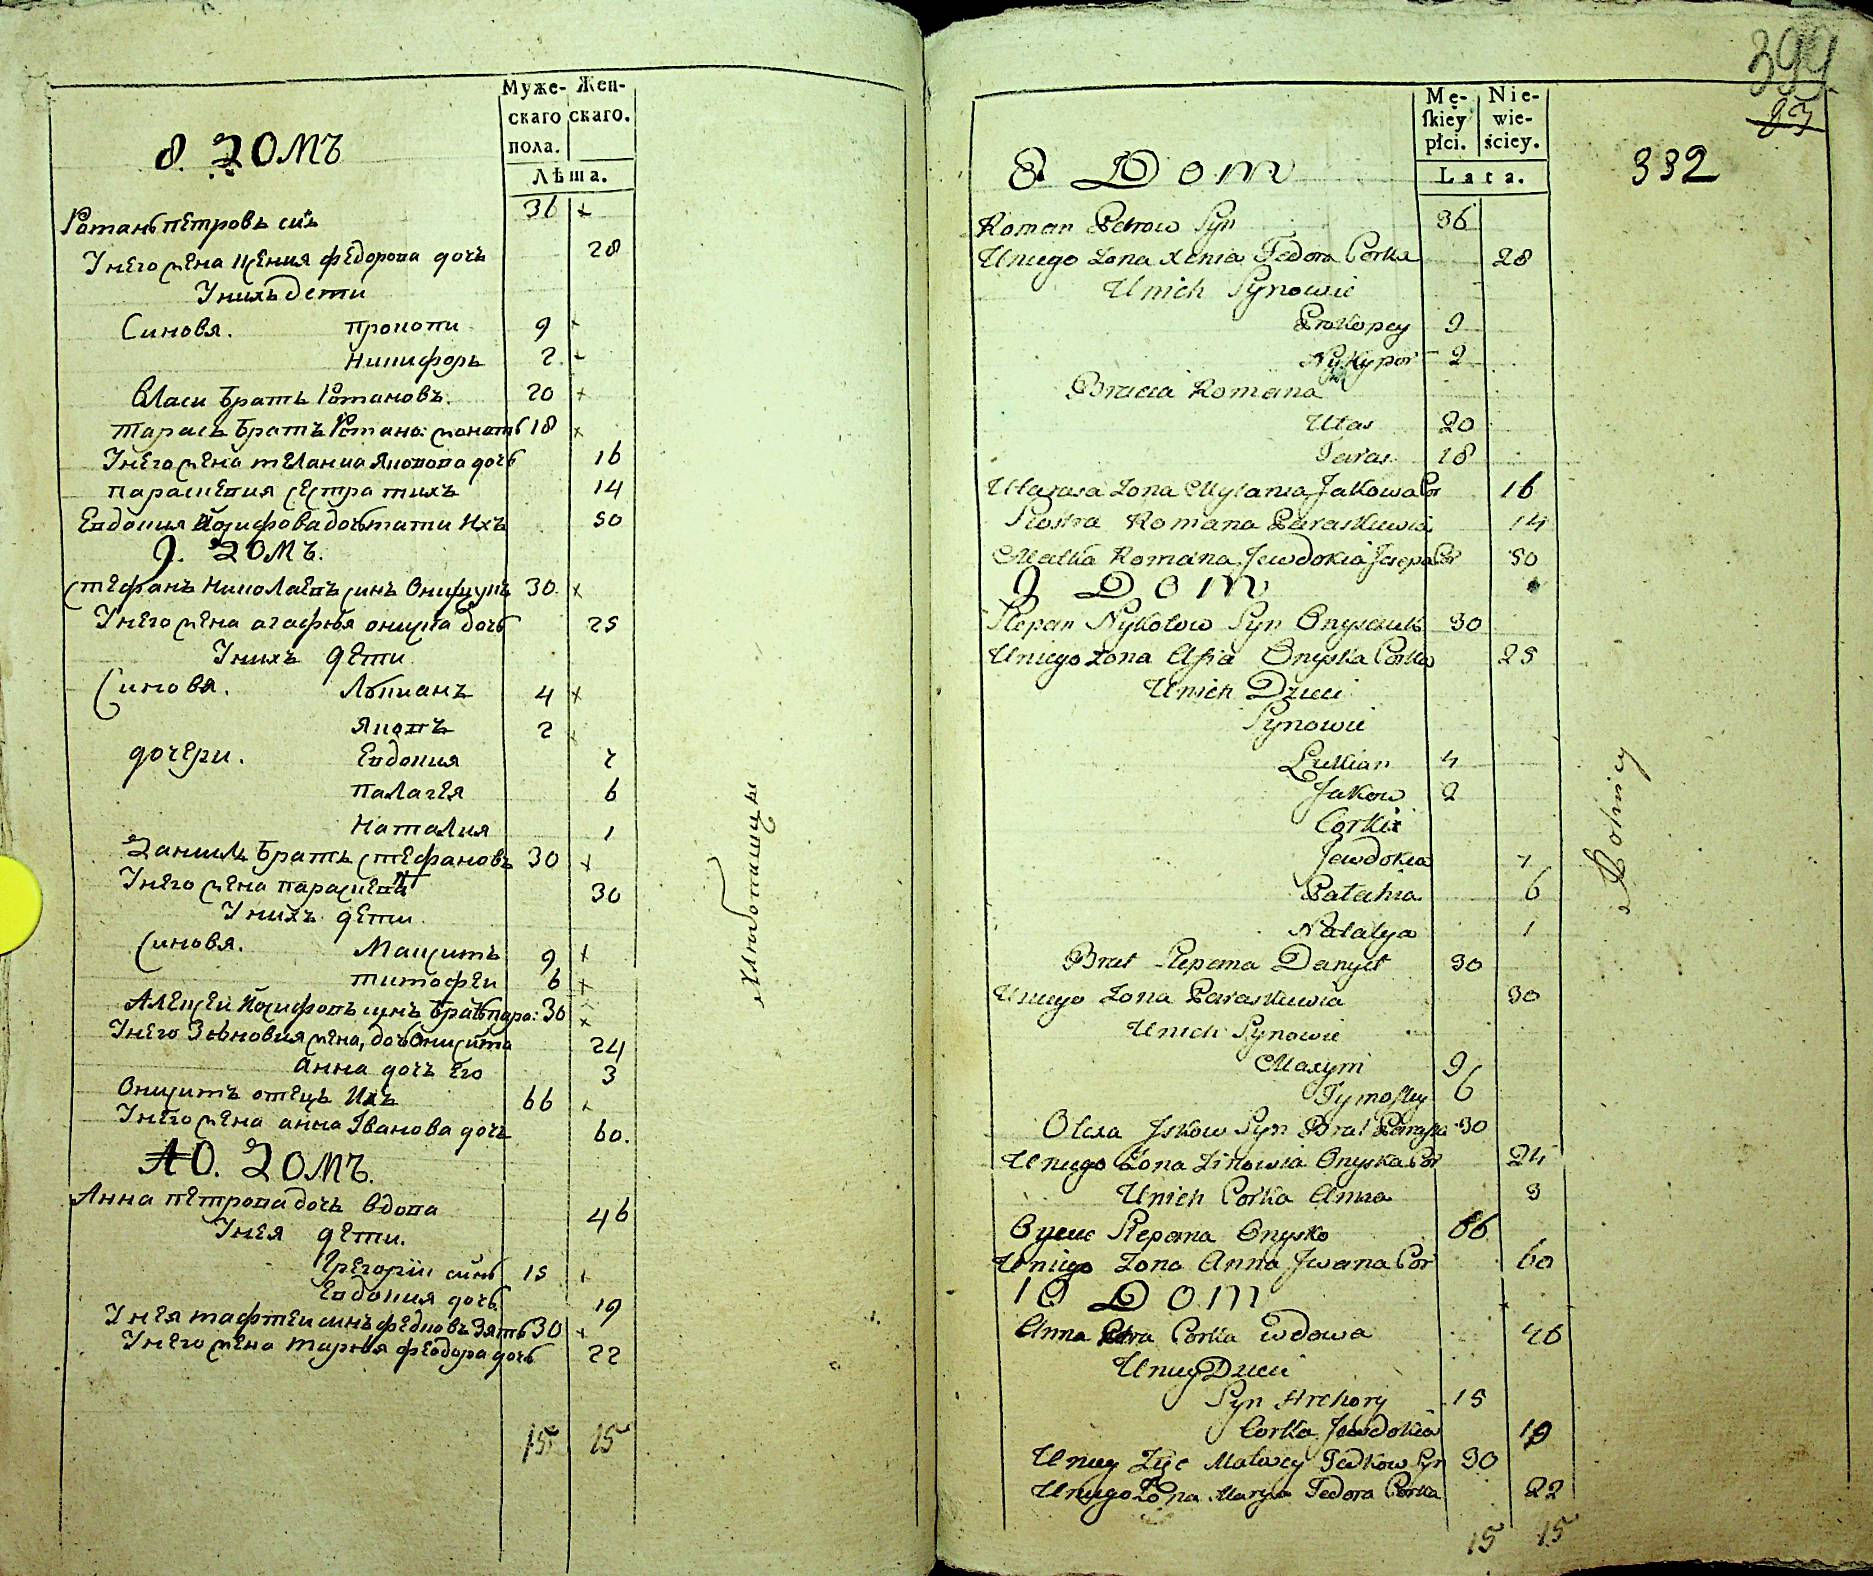 Муже-скаго пола. Жен-скаго.
Лѣта.
8. Домъ
Романъ петровъ синъ 36
Унего жена ксения федорова дочъ 28
Унихъ дети
Синовя. прокопи 9
никифоръ 2
власи братъ Романовъ. 20
тарасъ братъ Романо: жонатъ 18
Унего жена мелания яковова дочъ 16
параскевия сестра тихъ 14
Евдокия Йосифова дочъ мати ихъ 50
9. Домъ.
Стефанъ николаевъ синъ Онищукъ 30
Унего жена агафия онишка дочъ 25
Унихъ дети
Синовя. Лукианъ 4
яковъ 2
дочери. Евдокия 7
палагея 6
наталия 1
Данилъ братъ стефановъ 30
Унего жена параскевия 30
Унихъ дети
Синовя. Максимъ 9
тимофеи 6
Алексей Йосифовъ синъ братъ пара: 30
Унего Зѣновия жена, дочъ Онисима 24
Анна дочъ его 3
Онисимъ отецъ ихъ 66
Унего жена анна Іванова дочъ 60.
10. Домъ.
Анна петрова дочъ вдова 46
Унея дети.
Грегорий синъ 15
Евдокия дочъ 19
Унея матфеи синъ федковъ Зятъ 30
Унего жена мария феодора дочъ 22
15 15
Хлибопашцы
399
83
332
Mę-skiey płci. Nie-wie-ściey.
Lata.
8 Dom
Roman Petrow Syn 36
Uniego Zona Xenia Fedora Corka 28
Unich Synowie
Prokopey 9
Nykypor 2
Bracia Romana
Ułas 20
Taras 18
UTarasa Zona Mylania Jakowa Cor 16
Siostra Romana Paraskiewia 14
Matka Romana Jewdokia Josepa Cor 50
9 Dom
Stepan Nykołow Syn Onyszczuk 30
Uniego Zona Afia Onyska Corka 25
Unich Dzieci
Synowie
Lukian 4
Jakow 2
Corki
Jewdokia 7
Palahia 6
Natalya 1
Brat Stepana Danyło 30
Uniego Zona Paraskiewia 30
Unich Synowie
Maxym 9
Tymofiey 6
Olexa Jskow Syn Brat Parask 30
Uniego Zona Zinowia Onyska Cor 24
Unich Corka Anna 3
Oyciec Stepana Onysko 66
Uniego Zona Anna Jwana Cor 60
10 Dom
Anna Petra Corka wdowa 46
Uniey Dzieci
Syn Hrehory 15
Corka Jewdokia 19
Uniey Zięc Matwey Fedkow Syn 30
Uniego Zona Marya Fedora Corka 22
15 15
Rolnicy